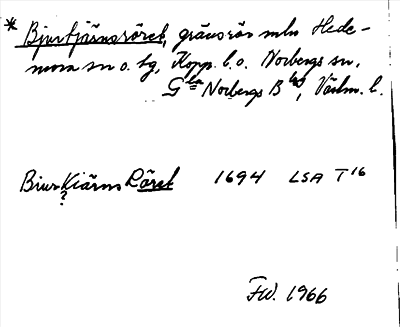 * Bjurtjärnsröret, gränsrör mln Hede-
mora sn o. tg, Kopp. l. o. Norbergs sn,
Gla Norbergs Blag, Västm. l.
BiursKiärns Röret 1694 LSA T16
?
FW. 1966